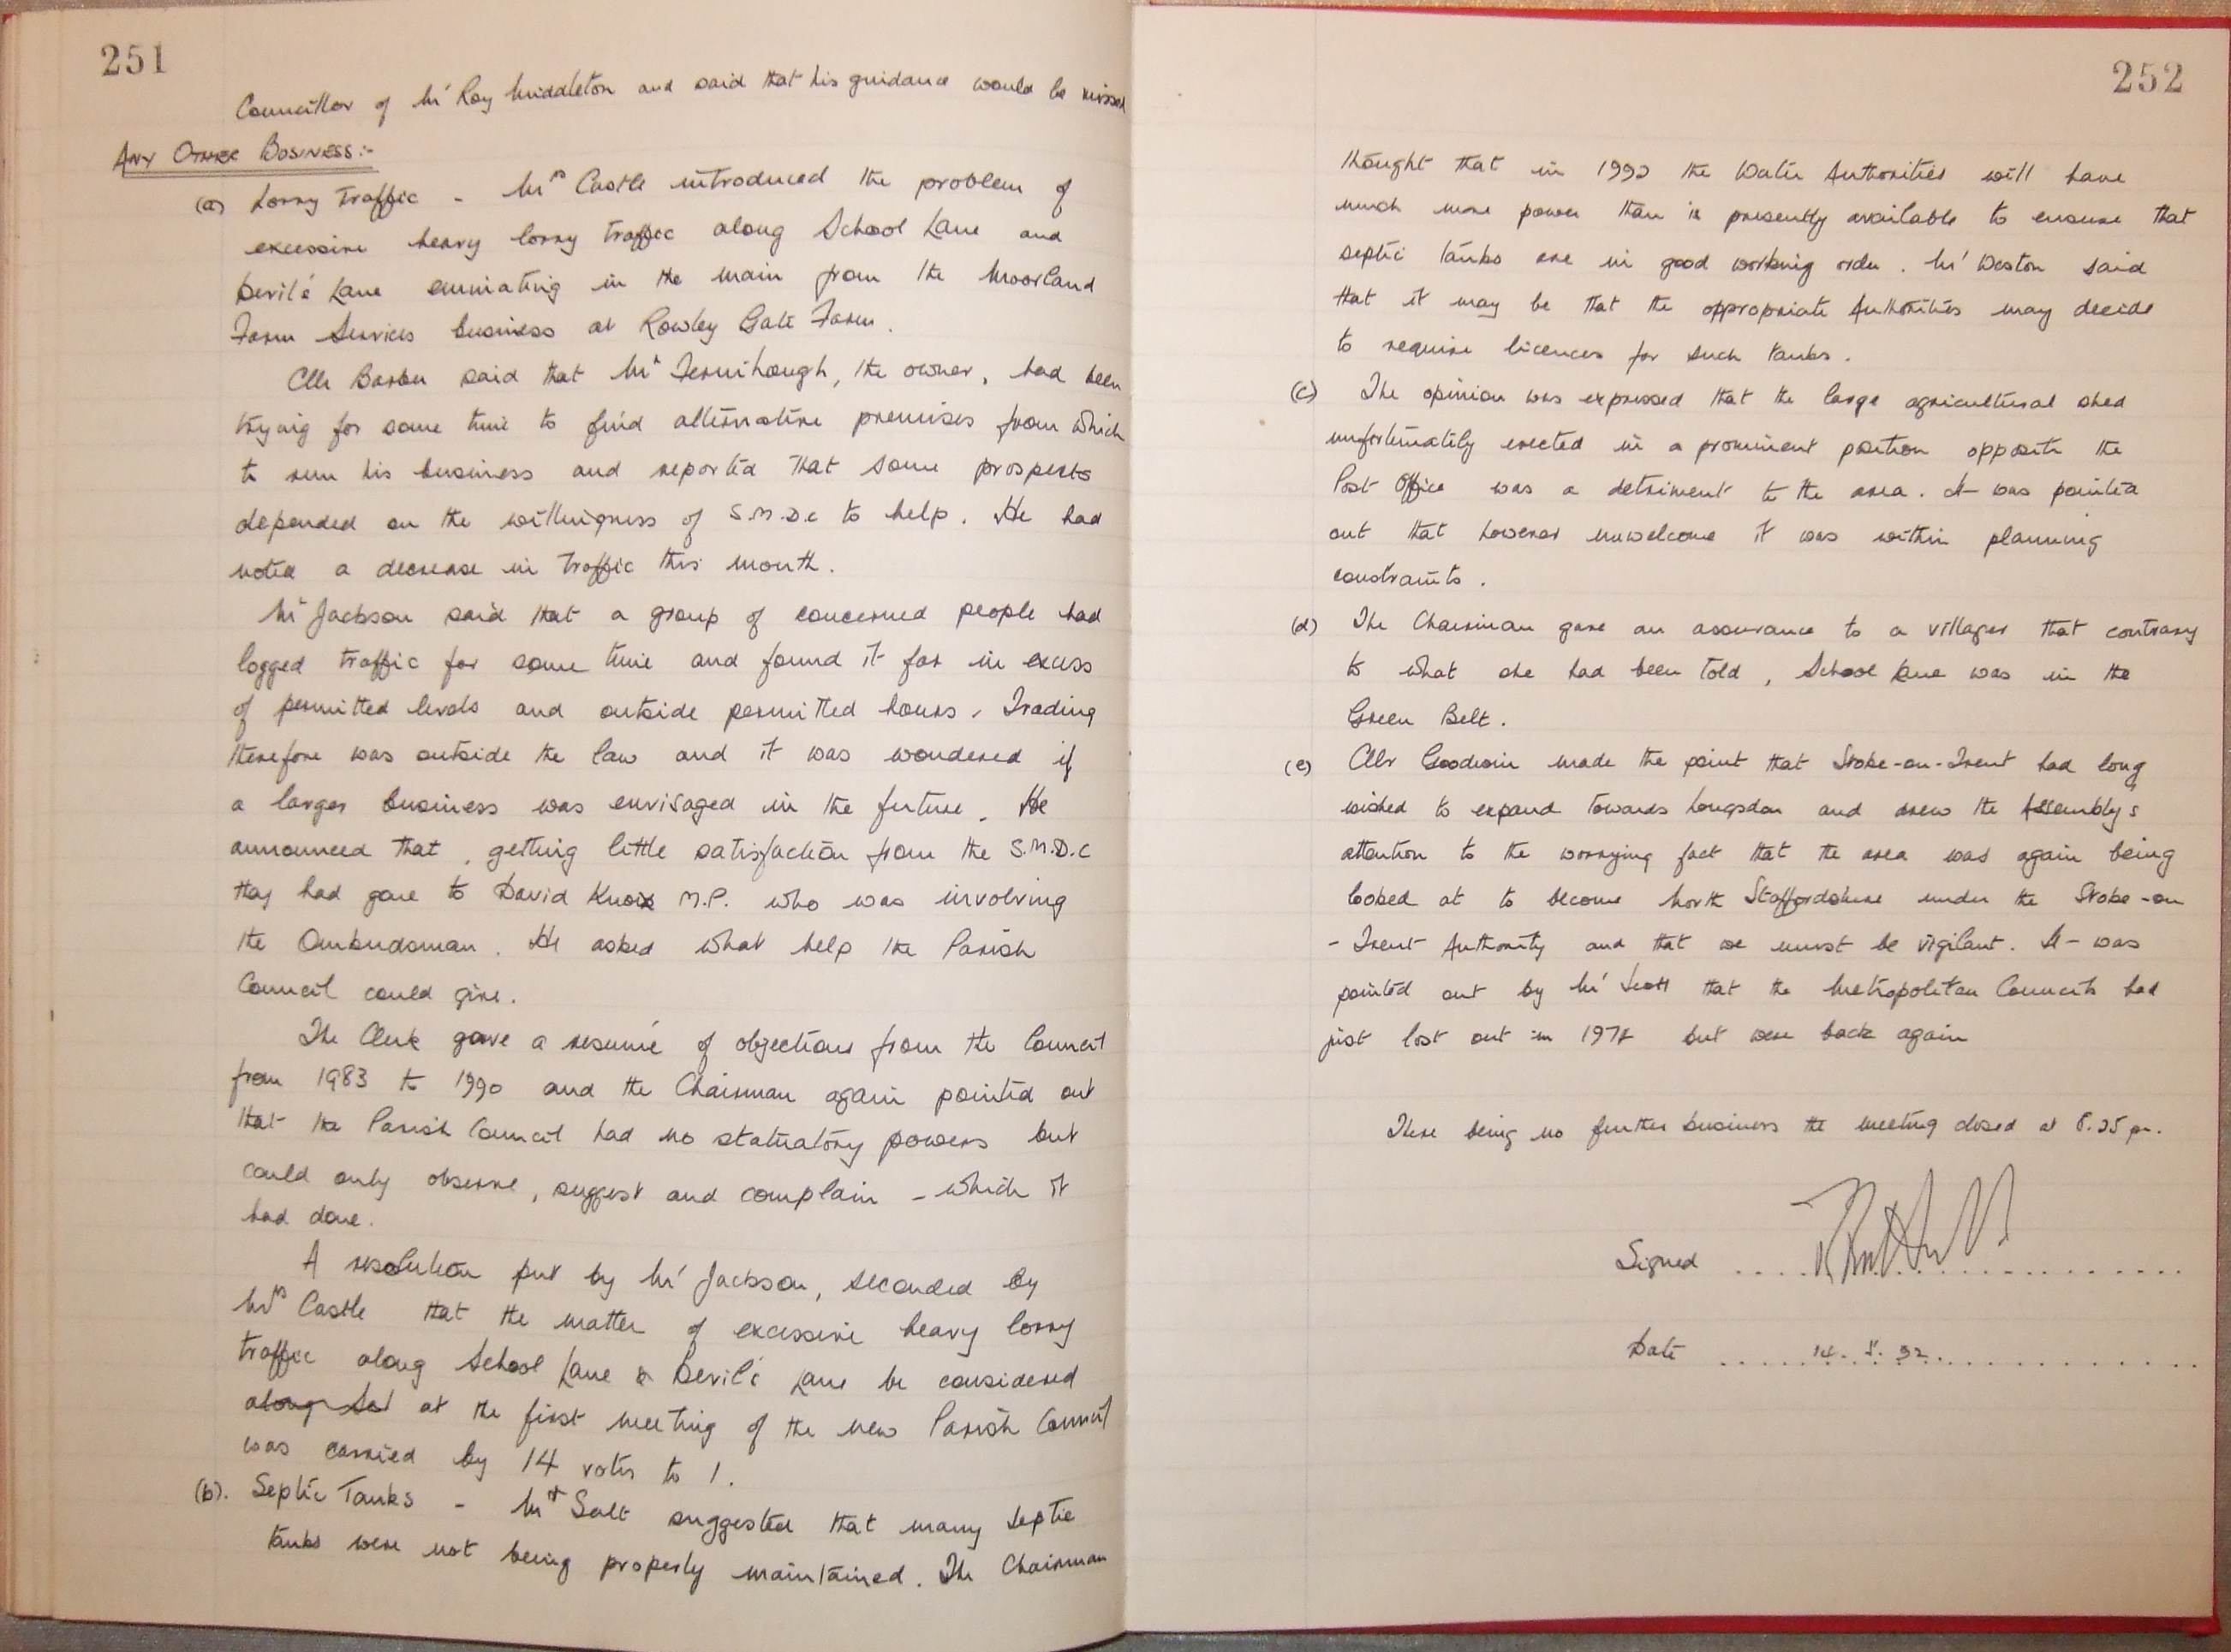 251
Councillor of Mr Roy Middleton and said that his guidance would be missed
ANY OTHER BUSINESS:-
(a) Lorry Traffic - Mrs Castle introduced the problem of
excessive heavy lorry traffic along School Lane and
Devil's Lane eminating in the main from the Moorland
Farm Services business at Rowley Gate Farm.
Cllr Barber said that Mr Fernihough, the owner, had been
trying for some time to find alternative premises from which
to run his business and reported that some prospects
depended on the willingness of S.M.D.C to help. He had
noted a decrease in traffic this month.
Mr Jackson said that a group of concerned people had
logged traffic for some time and found it far in excess
of permitted levels and outside permitted hours. Trading
therefore was outside the law and it was wondered if
a larger business was envisaged in the future. He
announced that, getting little satisfaction from the S.M.D.C
they had gone to David Knox M.P. who was involving
the Ombudsman. He asked what help the Parish
Council could give.
The Clerk gave a resumé of objections from the Council
from 1983 to 1990 and the Chairman again pointed out
that the Parish Council had no statuatory powers but
could only observe, suggest and complain - which it
had done.
A resolution put by Mr Jackson, seconded by
Mrs Castle that the matter of excessive heavy lorry
traffic along School Lane & Devil's Lane be considered
along at the first meeting of the new Parish Council
was carried by 14 votes to 1.
(b). Septic Tanks - Mr Salt suggested that many septic
tanks were not being properly maintained. The Chairman
252
thought that in 1992 the Water Authorities will have
much more power than is presently available to ensure that
septic tanks are in good working order. Mr Weston said
that it may be that the appropriate Authorities may decide
to require licences for such tanks.
(c) The opinion was expressed that the large agricultural shed
unfortunately erected in a prominent position opposite the
Post Office was a detriment to the area. It was pointed
out that however unwelcome it was within planning
constraints.
(d) The Chairman gave an assurance to a villager that contrary
to what she had been told, School Lane was in the
Green Belt.
(e) Cllr Goodwin made the point that Stoke-on-Trent had long
wished to expand towards Longsdon and drew the Assembly's
attention to the worrying fact that the area was again being
looked at to become North Staffordshire under the Stoke-on
-Trent Authority and that we must be vigilant. It was
pointed out by Mr Scott that the Metropolitan Councils had
just lost out in but were back again
There being no further business the meeting closed at 8.25 pm.
Signed
Date 14. 5. 92